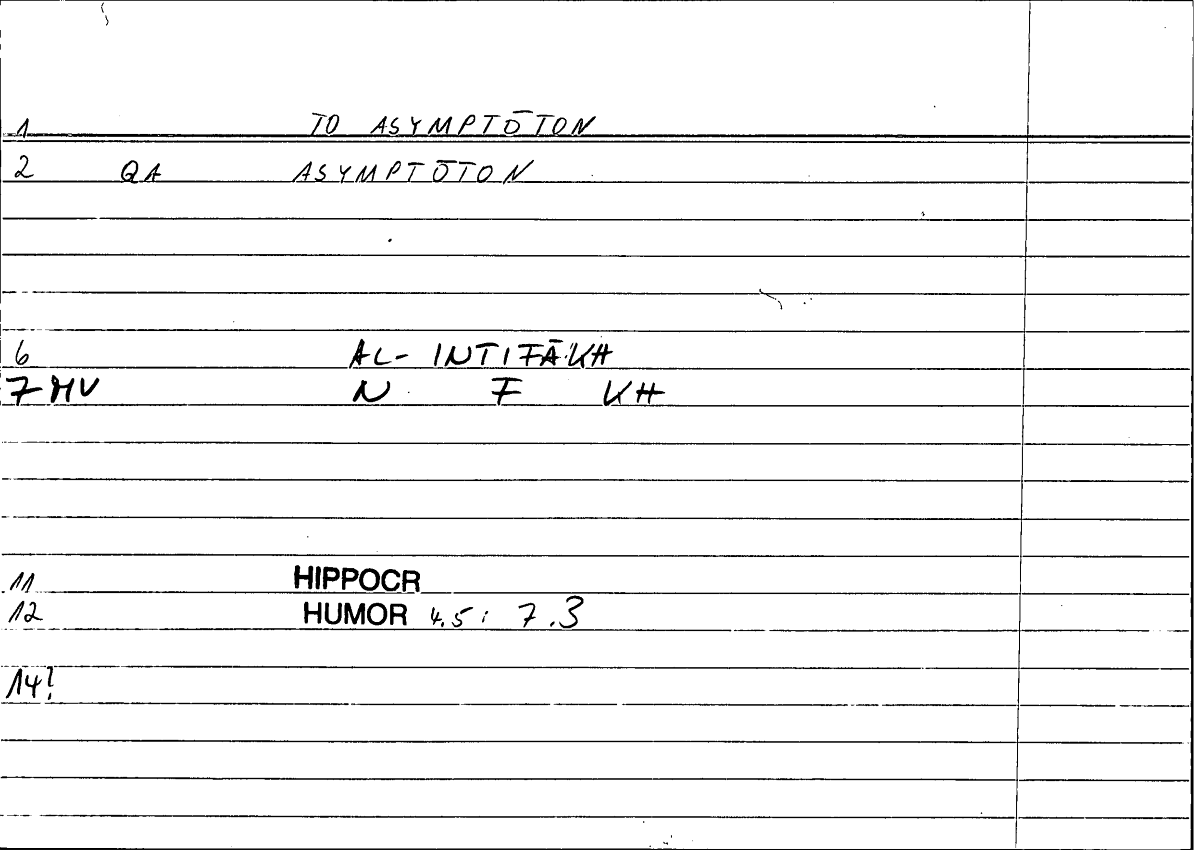 1 TO ASYMPTŌTON
2 QA ASYMPTŌTON
6 AL- INTIFĀKH
7 MV N F KH
11 HIPPOCR
12 HUMOR 4.5: 7.3
14!